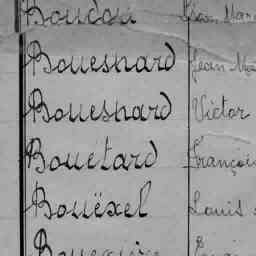 Boudou Jean Mar
Bouesnard Jean Ma
Bouesnard Victor
Bouétard François
Bouëxel Louis